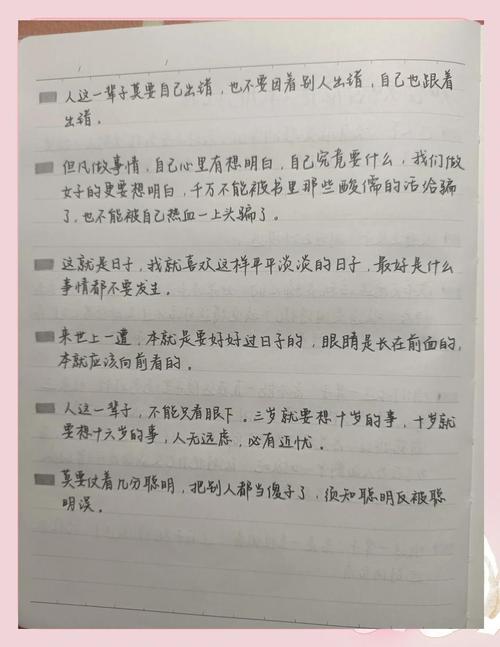 人这一辈子莫要自己出错，也不要因着别人出错，自己也跟着
出错。
但凡做事情，自己心里有想明白，自己究竟要什么，我们做
女子的更要想明白，千万不能被书里那些酸儒的话给骗
了，也不能被自己热血一上头骗了。
这就是日子，我就喜欢这样平平淡淡的日子，最好是什么
事情都不要发生。
来世上一遭，本就是要好好过日子的，眼睛是长在前面的，
本就应该向前看的。
人这一辈子，不能只看眼下。三岁就要想十岁的事，十岁就
要想十六岁的事，人无远虑，必有近忧。
莫要仗着几分聪明，把别人都当傻子了，须知聪明反被聪
明误。